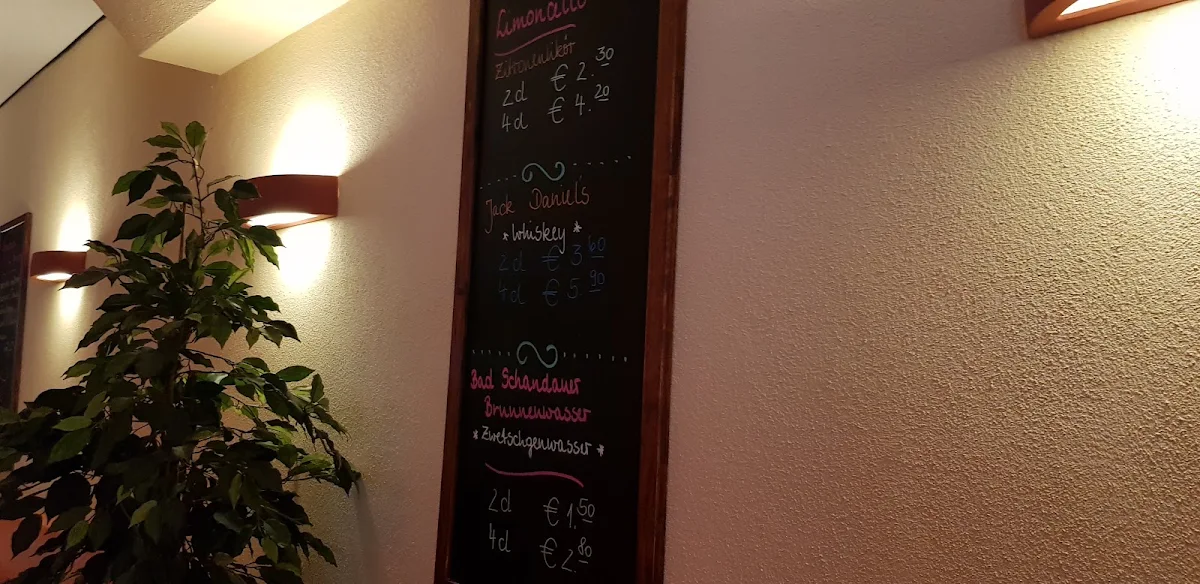 Limoncello
Zitronenlikör
2d € 2.30
4d € 4.20
Jack Daniel's
*Whiskey*
2d € 3.60
4d € 5.90
Bad Schandauer
Brunnenwasser
*Zwetschgenwasser*
2d € 1.50
4d € 2.80